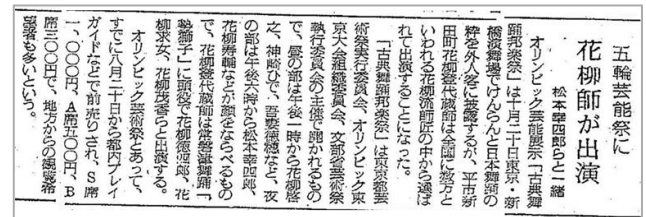 五輪芸能祭に
花柳師が出演
松本幸四郎らと一緒
オリンピック芸能展示「古典舞
踊邦楽祭」は十月二十日東京・新
橋演舞場でけんらんと日本舞踊の
粋を外人客に披露するが、平市新
田町花柳蓉代蔵師は全国に数万と
いわれる花柳流師匠の中から選ば
れて出演することになった。
「古典舞踊邦楽祭」は東京都芸
術祭実行委員会、オリンピック東
京大会組織委員会、文部省芸術祭
執行委員会の主催で開かれるもの
で、昼の部は午後一時から花柳啓
之、神崎ひで、吾妻徳穂など、夜
の部は午後六時から松本幸四郎、
花柳寿輔などが顔をならべるもの
で、花柳蓉代蔵師は常磐津舞踊「
勢獅子」に頭役で花柳徳四郎、花
柳求女、花柳茂香らと出演する。
オリンピック芸術祭とあって、
すでに八月二十日から都内プレイ
ガイドなどで前売りされ、S席
一、〇〇〇円、A席五〇〇円、B
席三〇〇円で、地方からの観覧希
望者も多いという。